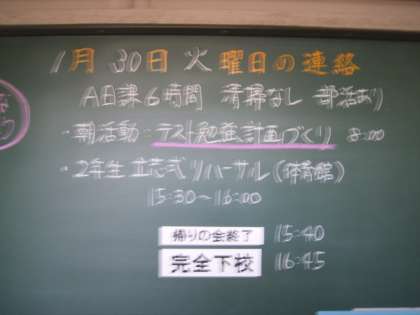 1月30日火曜日の連絡
A日課6時間 清掃なし 部活あり
・朝活動:テスト勉強計画づくり 8:00
・2年生立志式リハーサル(体育館)
15:30〜16:00
帰りの会終了 15:40
完全下校 16:45